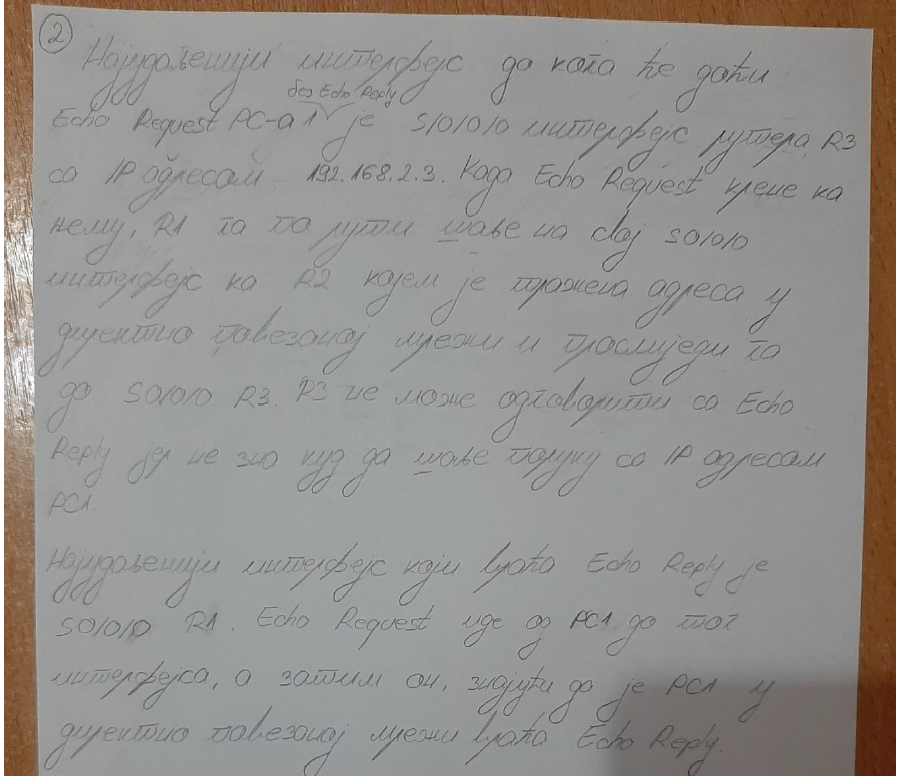 2
Најудаљенији интерфејс до кога ће доћи
без Echo Reply
Echo Request PC-a 1 је S/0/0/0 интерфејс рутера R3
са IP адресом 192.168.2.3. Када Echo Request крене ка
њему, R1 га по рути шаље на свој S0/0/0
интерфејс ка R2 којем је тражена адреса у
директно повезаној мрежи и прослиједи га
до S0/0/0 R3. R3 не може одговорити са Echo
Reply јер не зна куд да шаље поруку са IP адресом
PC1.
Најудаљенији интерфејс који враћа Echo Reply је
S0/0/0 R1. Echo Request иде од PC1 до тог
интерфејса, а затим он, знајући да је PC1 у
директно повезаној мрежи враћа Echo Reply.